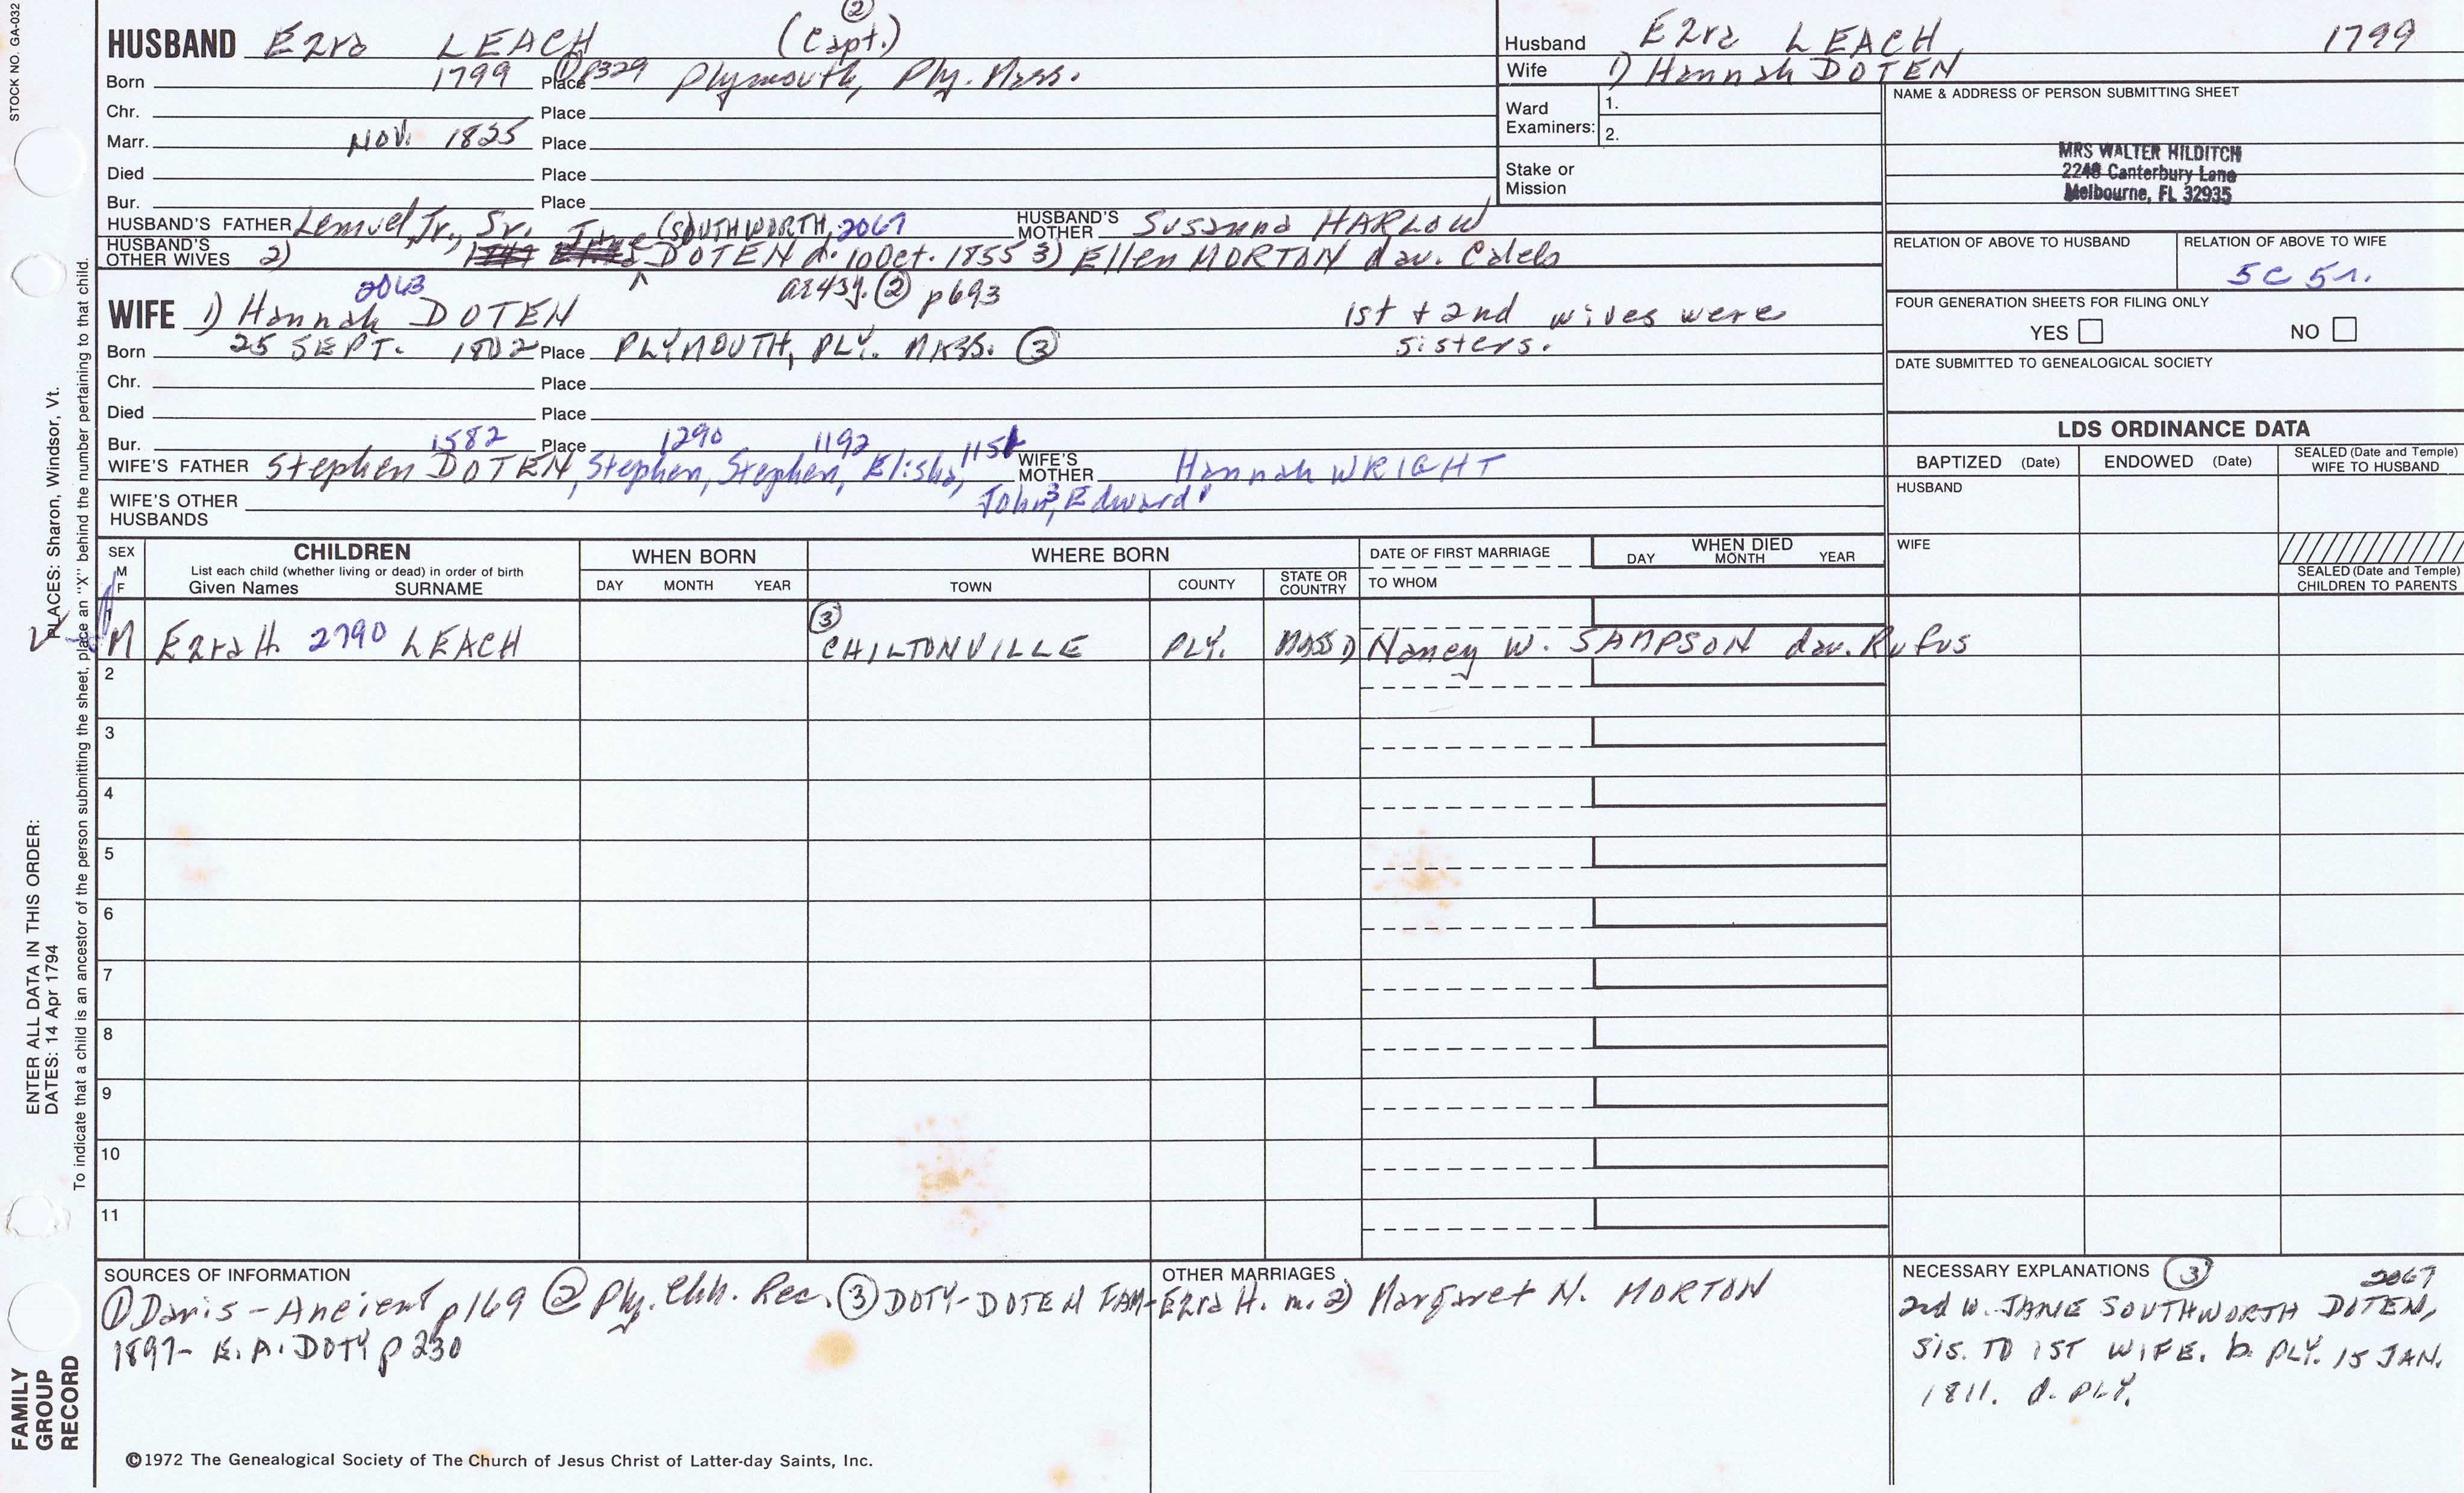 STOCK NO. GA-032
②
HUSBAND Ezra LEACH (Capt.)
Born 1799 Place ① p329 Plymouth, Ply. Mass.
Chr. Place
Marr. Nov. 1825 Place
Died Place
Bur. Place
HUSBAND'S FATHER Lemuel, Jr., Sr. HUSBAND'S MOTHER Susanna HARLOW
Jane (SOUTHWORTH, 2067
HUSBAND'S OTHER WIVES 2) DOTEN d. 10 Oct. 1855 3) Ellen MORTON dau. Caleb
2063 ae 43y. ② p693
WIFE 1) Hannah DOTEN
1st + 2nd wives were
sisters.
Born 25 SEPT. 1802 Place PLYMOUTH, PLY. MASS. ③
Chr. Place
Died Place
Bur. Place
1582 1290 1192 115
WIFE'S FATHER Stephen DOTEN, Stephen, Stephen, Elisha, WIFE'S MOTHER Hannah WRIGHT
John³, Edward¹
WIFE'S OTHER HUSBANDS
Husband Ezra LEACH, 1799
Wife 1) Hannah DOTEN
Ward Examiners: 1.
2.
Stake or Mission
NAME & ADDRESS OF PERSON SUBMITTING SHEET
MRS WALTER HILDITCH
2248 Canterbury Lane
Melbourne, FL 32935
RELATION OF ABOVE TO HUSBAND RELATION OF ABOVE TO WIFE
5c 5r.
FOUR GENERATION SHEETS FOR FILING ONLY
YES NO
DATE SUBMITTED TO GENEALOGICAL SOCIETY
LDS ORDINANCE DATA
BAPTIZED (Date) ENDOWED (Date) SEALED (Date and Temple) WIFE TO HUSBAND
HUSBAND
WIFE
SEALED (Date and Temple) CHILDREN TO PARENTS
SEX M F
CHILDREN
List each child (whether living or dead) in order of birth
Given Names SURNAME
WHEN BORN
DAY MONTH YEAR
WHERE BORN
TOWN COUNTY STATE OR COUNTRY
DATE OF FIRST MARRIAGE
TO WHOM
WHEN DIED
DAY MONTH YEAR
1
M Ezra H. 2790 LEACH ③ CHILTONVILLE PLY. MASS 1) Nancy W. SAMPSON dau. Rufus
2
3
4
5
6
7
8
9
10
11
SOURCES OF INFORMATION
① Davis - Ancient p169 ② Ply. Chh. Rec. ③ DOTY-DOTEN FAM-
1897- E.A. DOTY p 230
OTHER MARRIAGES
Ezra H. m. 2) Margaret N. MORTON
NECESSARY EXPLANATIONS ③ 2067
2nd W. JANE SOUTHWORTH DOTEN,
SIS. TO 1ST WIFE. b. PLY. 15 JAN.
1811. d. PLY.
©1972 The Genealogical Society of The Church of Jesus Christ of Latter-day Saints, Inc.
FAMILY
GROUP
RECORD
ENTER ALL DATA IN THIS ORDER:
DATES: 14 Apr 1794
PLACES: Sharon, Windsor, Vt.
To indicate that a child is an ancestor of the person submitting the sheet, place an "X" behind the number pertaining to that child.